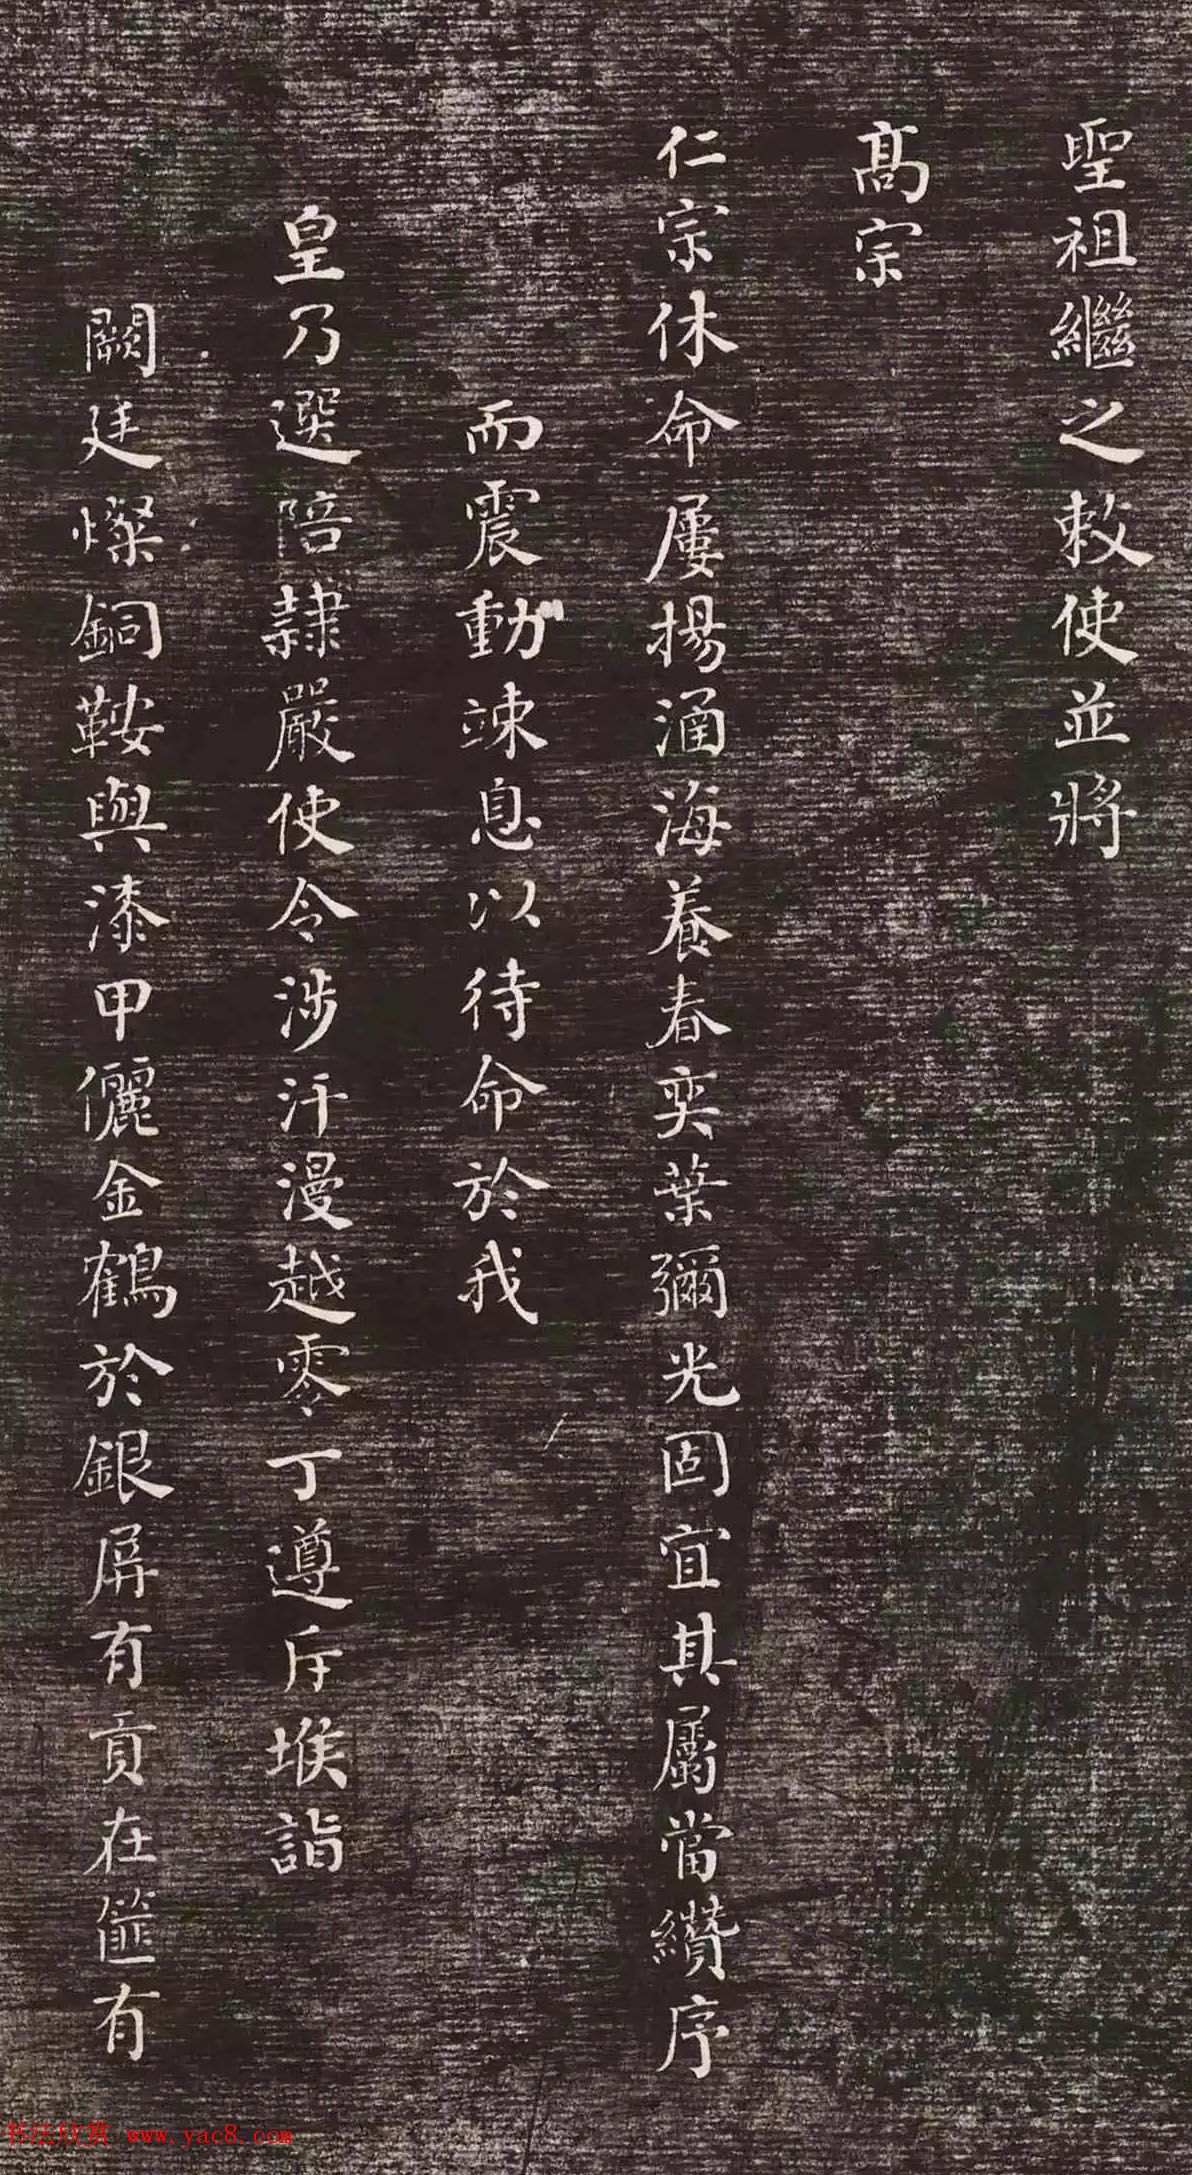 聖祖繼之敕使並將
高宗
仁宗休命屢揚涵海養春奕葉彌光固宜其屬當纘序
而震動竦息以待命於我
皇乃選陪隸嚴使令涉汗漫越零丁遵斥堠詣
闕廷燦銅鞍與漆甲儷金鶴於銀屏有貢在篚有
书法欣赏 www.yac8.com